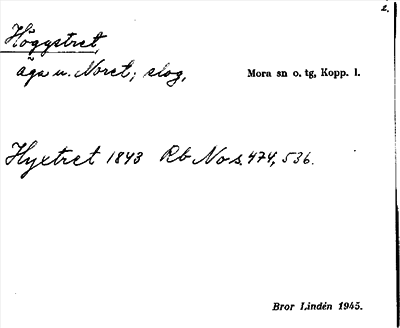 2.
Höggystret,
äga u. Noret; slog,
Mora sn o. tg, Kopp. l.
Hyxtret 1843 Rb No s. 474, 536.
Bror Lindén 1945.